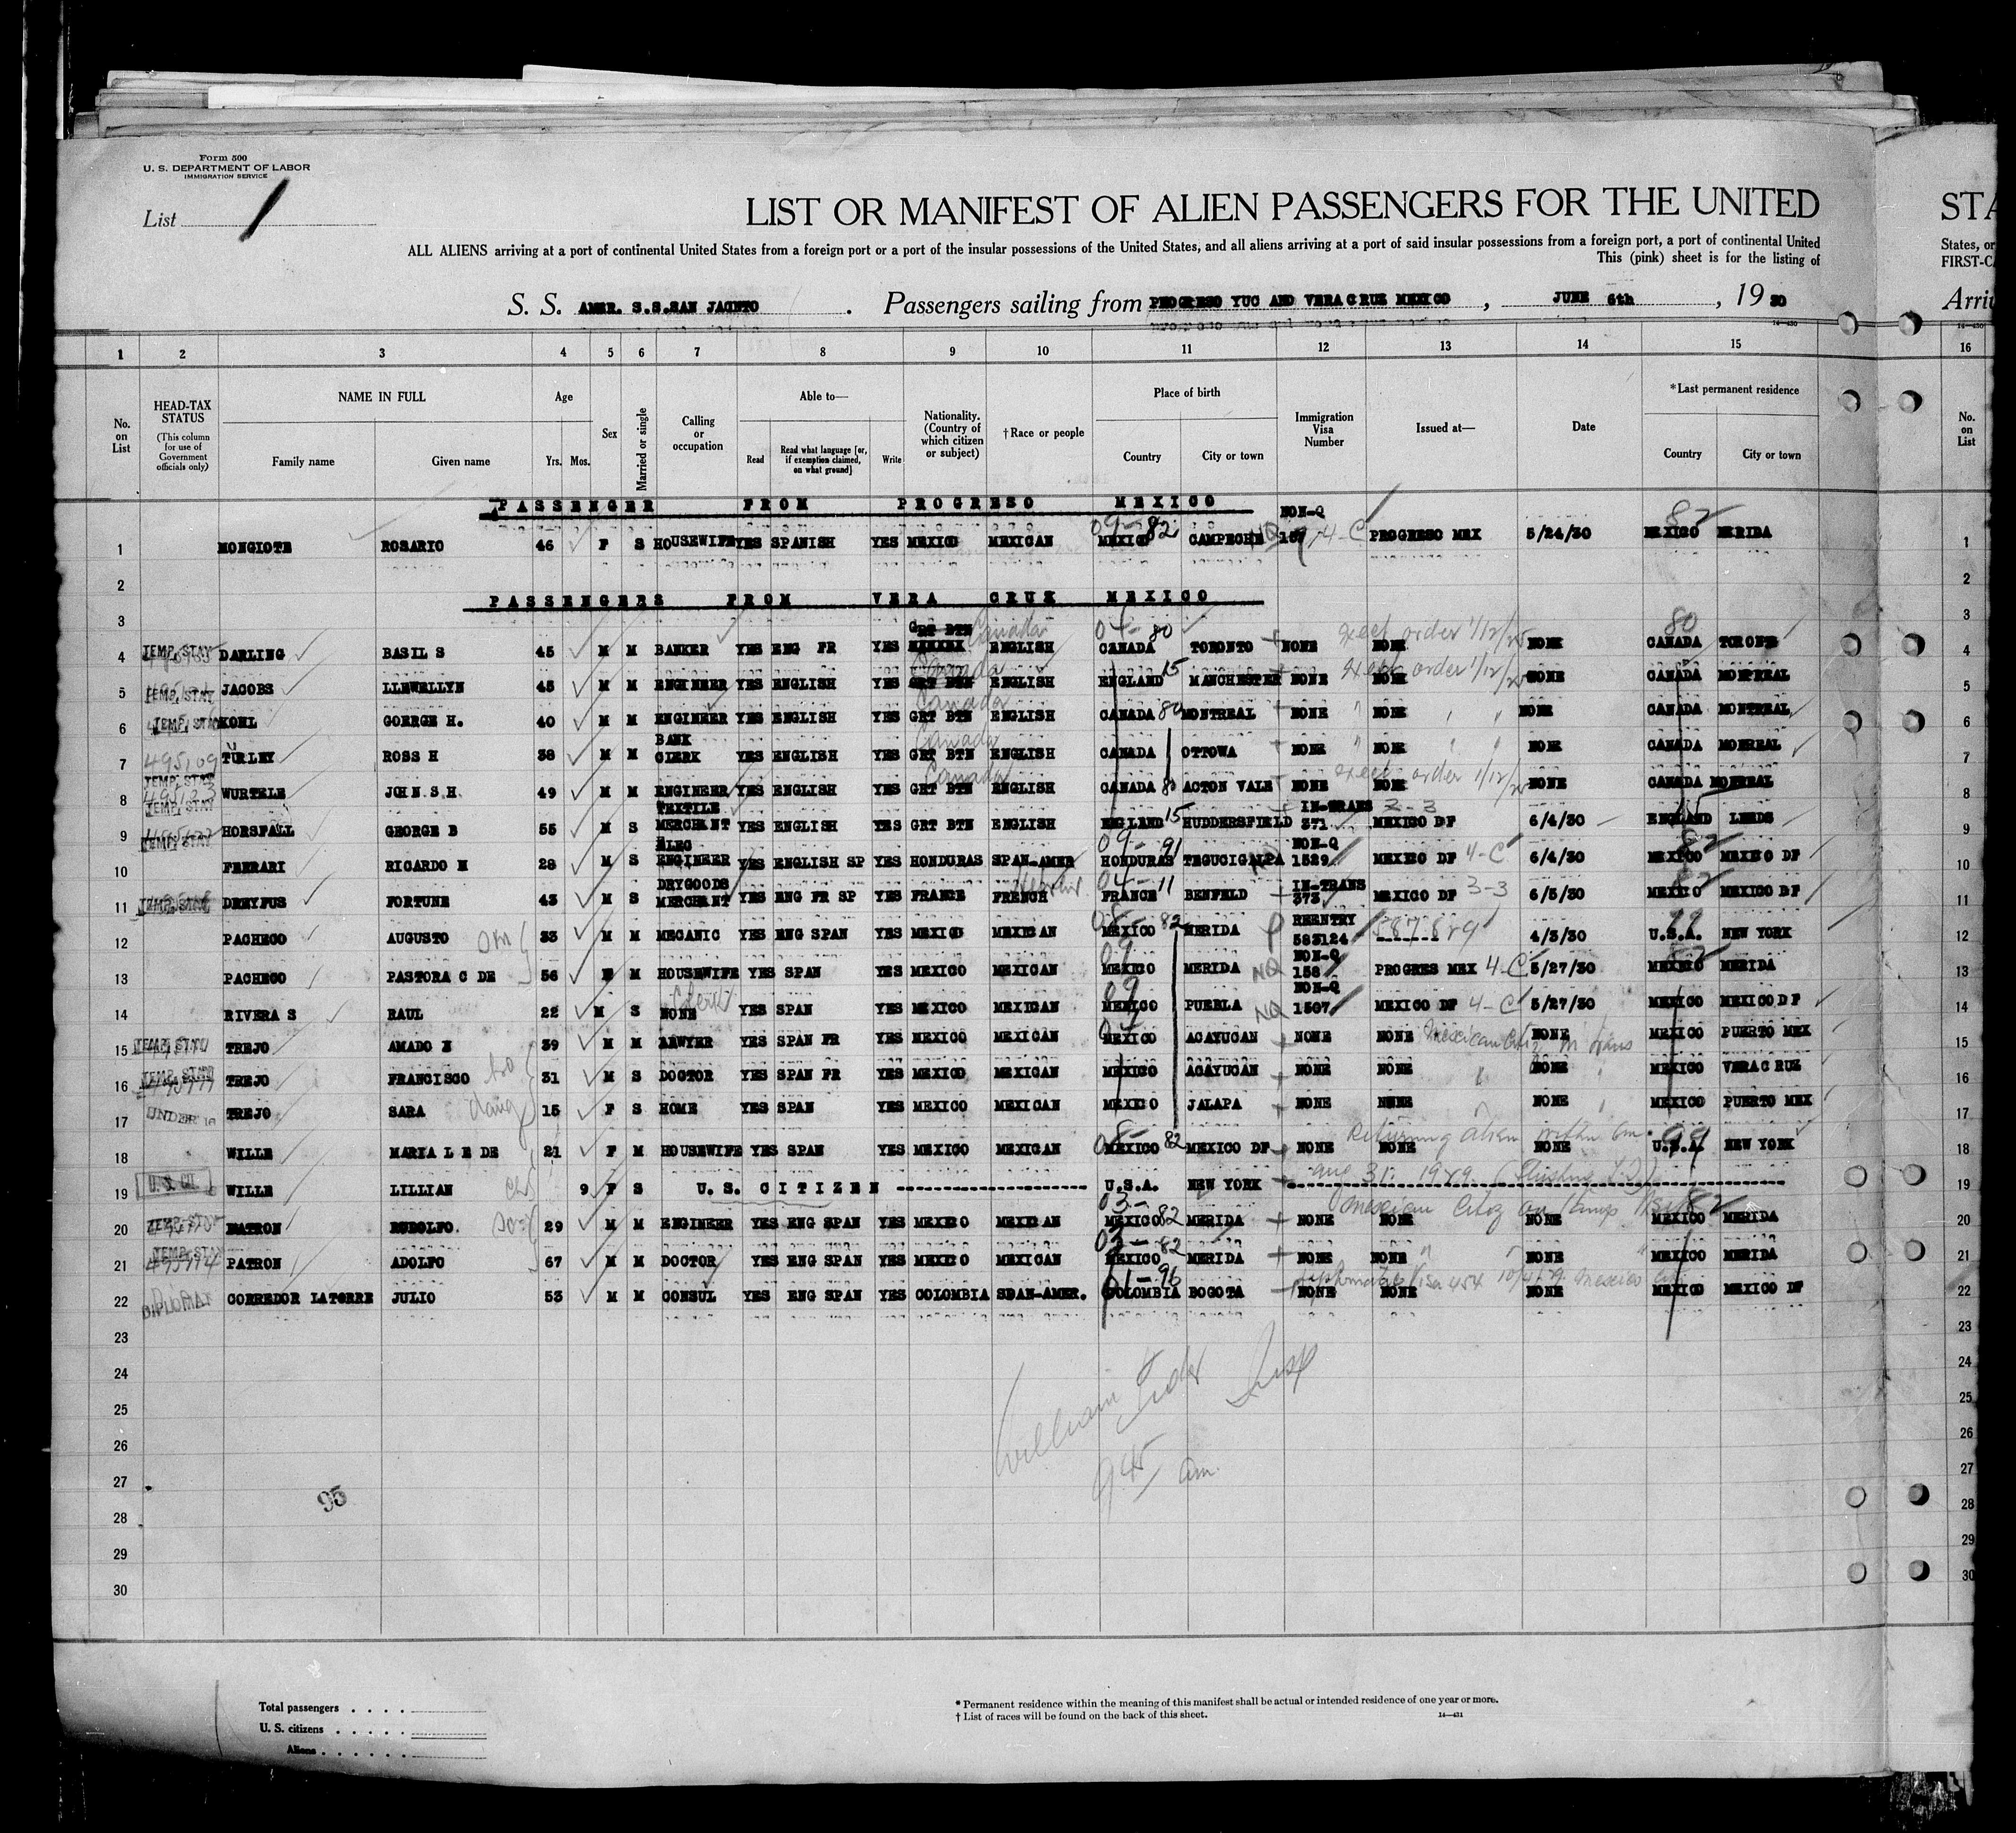 Form 500
U. S. DEPARTMENT OF LABOR
IMMIGRATION SERVICE
List 1
LIST OR MANIFEST OF ALIEN PASSENGERS FOR THE UNITED
STA
ALL ALIENS arriving at a port of continental United States from a foreign port or a port of the insular possessions of the United States, and all aliens arriving at a port of said insular possessions from a foreign port, a port of continental United
States, or
This (pink) sheet is for the listing of
FIRST-C
S. S. AMER. S.S.SAN JACINTO. Passengers sailing from PROGRESO YUC AND VERA CRUZ MEXICO, JUNE 6th, 19 30
Arri
1 2 3 4 5 6 7 8 9 10 11 12 13 14 15 16
No. on List
HEAD-TAX STATUS (This column for use of Government officials only)
NAME IN FULL Family name Given name
Age Yrs. Mos.
Sex
Married or single
Calling or occupation
Able to— Read Read what language [or, if exemption claimed, on what ground] Write
Nationality. (Country of which citizen or subject)
†Race or people
Place of birth Country City or town
Immigration Visa Number
Issued at—
Date
*Last permanent residence Country City or town
No. on List
PASSENGER FROM PROGRESO MEXICO
1 MONGIOTE ROSARIO 46 F S HOUSEWIFE YES SPANISH YES MEXICO MEXICAN 09- 82 MEXICO CAMPECHE NON-Q 4-C PROGRESO MEX 5/24/30 82 MEXICO MERIDA 1
2 2
PASSENGERS FROM VERA CRUZ MEXICO
3 3
4 TEMP. STAY DARLING BASIL S 45 M M BANKER YES ENG FR YES GRT BTN Canada ENGLISH 80 CANADA TORONTO NONE NONE exect order 1/12/25 NONE 80 CANADA TORONTO 4
5 TEMP. STAY JACOBS LLEWELLYN 45 M M ENGINEER YES ENGLISH YES GRT BTN Canada ENGLISH ENGLAND 15 MANCHESTER NONE NONE order 1/12/25 NONE CANADA MONTREAL 5
6 TEMP. STAY KOHL GOERGE H. 40 M M ENGINEER YES ENGLISH YES GRT BTN Canada ENGLISH CANADA 80 MONTREAL NONE " NONE " " NONE CANADA MONTREAL 6
7 495109 TURLEY ROSS H 38 M M BANK CLERK YES ENGLISH YES GRT BTN Canada ENGLISH CANADA OTTOWA NONE " NONE " " NONE CANADA MONREAL 7
8 TEMP. STAY WURTELE JOHN.S.H. 49 M M ENGINEER YES ENGLISH YES GRT BTN Canada ENGLISH CANADA 80 ACTON VALE NONE NONE exect order 1/12/25 NONE CANADA MONTREAL 8
9 TEMP. STAY HORSFALL GEORGE B 55 M S TEXTILE MERCHANT YES ENGLISH YES GRT BTN ENGLISH ENGLAND 15 HUDDERSFIELD IN-TRANS 371 3-3 MEXICO DF 6/4/30 15 ENGLAND LEEDS 9
10 FERRARI RICARDO M 28 M S ELEC ENGINEER YES ENGLISH SP YES HONDURAS SPAN-AMER 09- 91 HONDURAS TEGUCIGALPA NON-Q 1529 MEXICO DF 4-C 6/4/30 82 MEXICO MEXICO DF 10
11 TEMP. STAY DREYFUS FORTUNE 43 M S DRYGOODS MERCHANT YES ENG FR SP YES FRANCE Hebrew FRENCH 04- 11 FRANCE BENFELD IN-TRANS 373 MEXICO DF 3-3 6/5/30 MEXICO MEXICO DF 11
12 PACHECO AUGUSTO 33 M M MECANIC YES ENG SPAN YES MEXICO MEXICAN 82 MEXICO MERIDA REENTRY 583124 4/3/30 99 U.S.A. NEW YORK 12
13 PACHECO PASTORA C DE 56 F M HOUSEWIFE YES SPAN YES MEXICO MEXICAN 09 MEXICO MERIDA NQ NON-Q 158 PROGRES MEX 4-C 5/27/30 82 MEXICO MERIDA 13
14 RIVERA S RAUL 22 M S Clerk NONE YES SPAN YES MEXICO MEXICAN 09 MEXICO PUEBLA NQ NON-Q 1507 MEXICO DF 4-C 5/27/30 MEXICO MEXICO DF 14
15 TEMP. STAY TREJO AMADO 39 M M LAWYER YES SPAN FR YES MEXICO MEXICAN 04 MEXICO ACAYUCAN NONE NONE Mexican Citz in trans NONE MEXICO PUERTO MEX 15
16 TEMP. STAY TREJO FRANCISCO bro 31 M S DOCTOR YES SPAN FR YES MEXICO MEXICAN MEXICO ACAYUCAN NONE NONE " NONE MEXICO VERACRUZ 16
17 UNDER 16 TREJO SARA daug 15 F S HOME YES SPAN YES MEXICO MEXICAN MEXICO JALAPA NONE NONE NONE MEXICO PUERTO MEX 17
18 WILLE MARIA L E DE 21 F M HOUSEWIFE YES SPAN YES MEXICO MEXICAN 82 MEXICO MEXICO DF NONE NONE Returning alien within 6m NONE 99 U.S.A. NEW YORK 18
19 U. S. CIT WILLE LILLIAN ch 9 F S U. S. CITIZEN U.S.A. NEW YORK 19
20 TEMP. STAY PATRON RUDOLFO. 29 M M ENGINEER YES ENG SPAN YES MEXICO MEXICAN 03- 82 MEXICO MERIDA NONE NONE Mexican Citiz NONE 82 MEXICO MERIDA 20
21 TEMP. STAY PATRON ADOLFO 67 M M DOCTOR YES ENG SPAN YES MEXICO MEXICAN 03- 82 MEXICO MERIDA NONE NONE " NONE MEXICO MERIDA 21
22 DIPLOMAT CORREDOR LATORRE JULIO 53 M M CONSUL YES ENG SPAN YES COLOMBIA SPAN-AMER. 01-96 COLOMBIA BOGOTA NONE NONE Diplomatic Visa 454 NONE MEXICO MEXICO DF 22
23 23
24 24
25 25
26 26
27 27
28 28
29 29
30 30
William Insp
945 am.
95
Total passengers
U. S. citizens
Aliens
* Permanent residence within the meaning of this manifest shall be actual or intended residence of one year or more.
† List of races will be found on the back of this sheet.
14—431